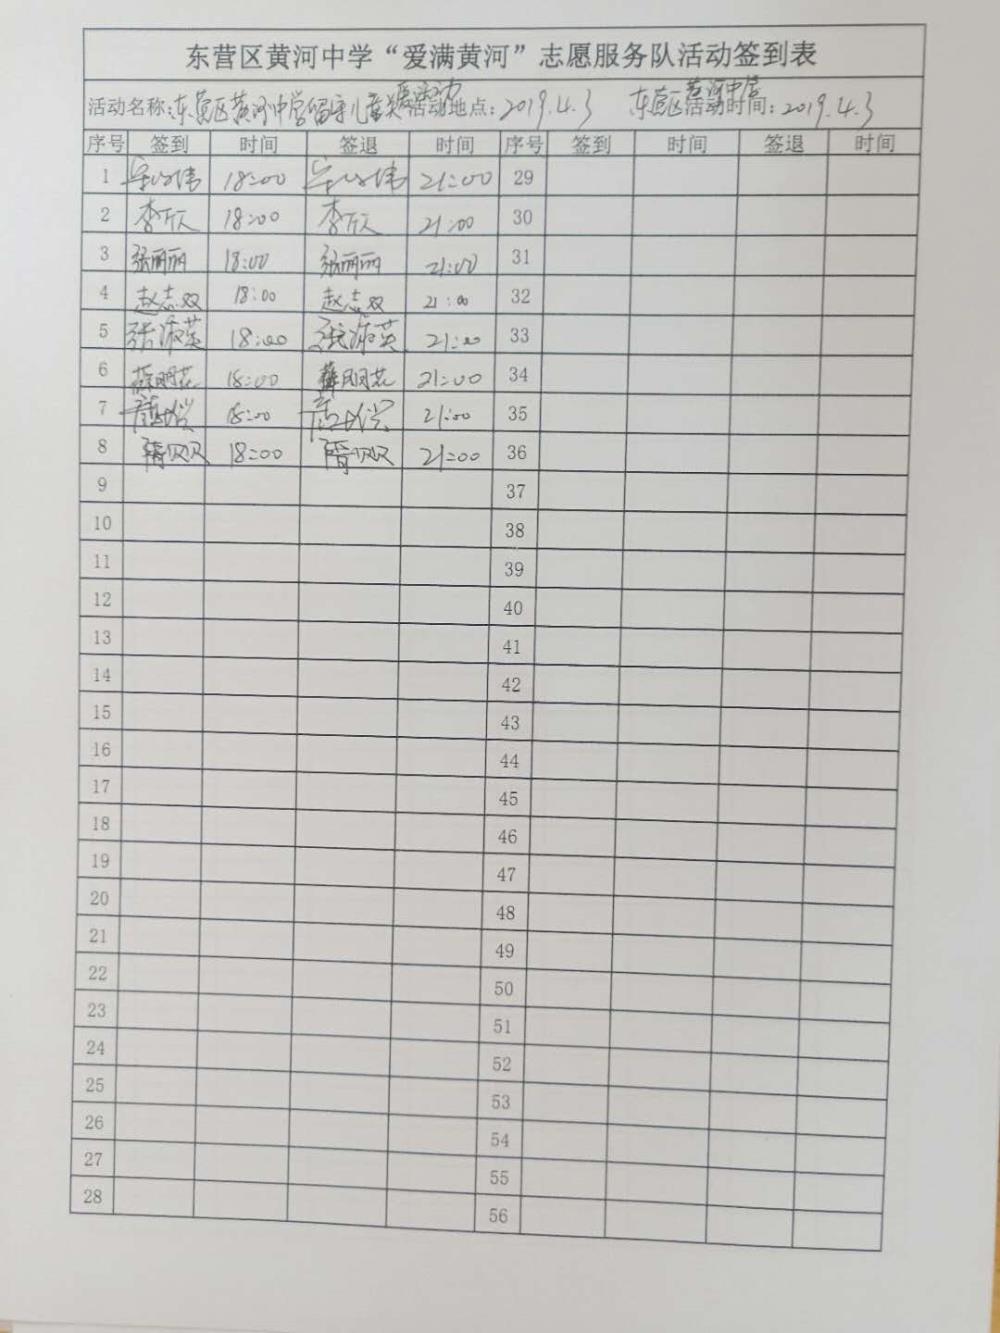 东营区黄河中学“爱满黄河”志愿服务队活动签到表
活动名称：东营区黄河中学留守儿童 活动地点：2019.4.3 东营区黄河中学 活动时间：2019.4.3
序号 签到 时间 签退 时间 序号 签到 时间 签退 时间
1 18:00 21:00 29
2 李欣 18:00 李欣 21:00 30
3 张丽丽 18:00 张丽丽 21:00 31
4 赵志双 18:00 赵志双 21:00 32
5 张淑英 18:00 张淑英 21:00 33
6 薛明花 18:00 薛明花 21:00 34
7 18:00 21:00 35
8 隋贝贝 18:00 隋贝贝 21:00 36
9 37
10 38
11 39
12 40
13 41
14 42
15 43
16 44
17 45
18 46
19 47
20 48
21 49
22 50
23 51
24 52
25 53
26 54
27 55
28 56